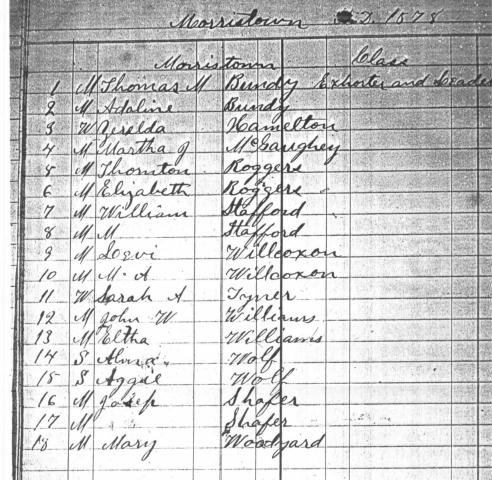 Morristown A.D. 1878
Morristown Class
1 M Thomas M Bundy Exhorter and Leader
2 M Adaline Bundy
3 W Zerelda Hamelton
4 M Martha J McGaughey
5 M Thornton Roggers
6 M Elizabeth Roggers
7 M William Stafford
8 M M Stafford
9 M Levi Willcoxon
10 M M. A Willcoxon
11 W Sarah A Tyner
12 M John W Williams
13 M Eltha Williams
14 S Alma Wolf
15 S Aggie Wolf
16 M Josep Shafer
17 M Shafer
18 M Mary Woodyard